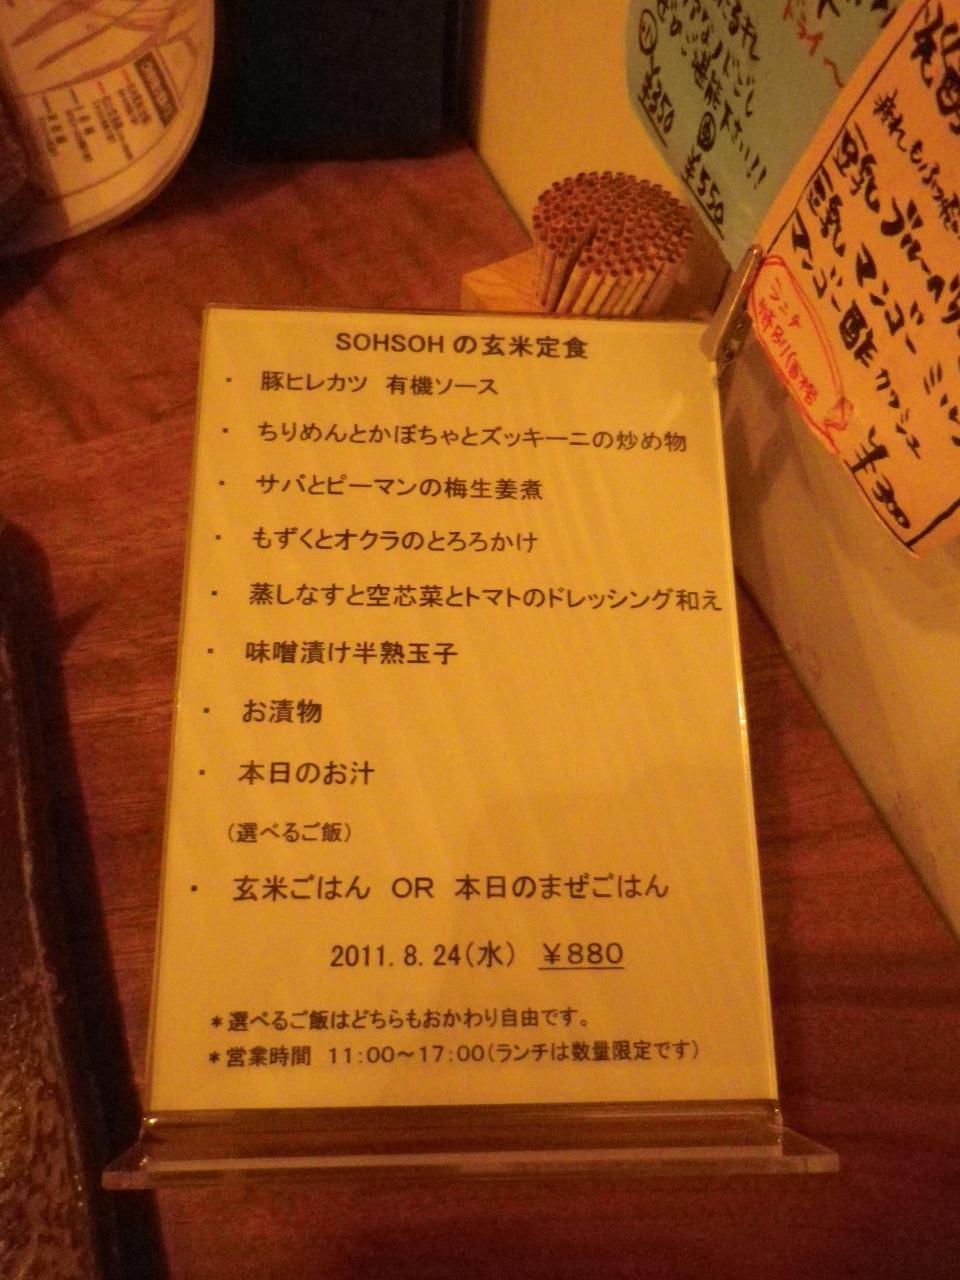 SOHSOHの玄米定食
・ 豚ヒレカツ 有機ソース
・ ちりめんとかぼちゃとズッキーニの炒め物
・ サバとピーマンの梅生姜煮
・ もずくとオクラのとろろかけ
・ 蒸しなすと空芯菜とトマトのドレッシング和え
・ 味噌漬け半熟玉子
・ お漬物
・ 本日のお汁
(選べるご飯)
・ 玄米ごはん OR 本日のまぜごはん
2011.8.24(水) ¥880
*選べるご飯はどちらもおかわり自由です。
*営業時間 11:00~17:00(ランチは数量限定です)
ノドごし
堪能下さい!!
¥350
¥550
マンゴー酢
¥300
ランチ
特別価格